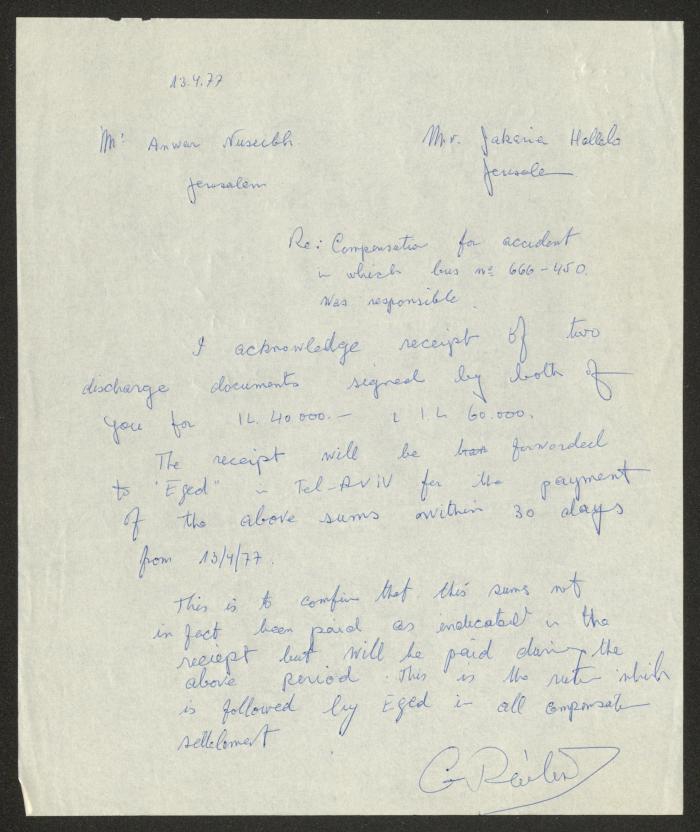 13.4.77
Mr Anwar Nuseibh
Jerusalem
Mr. Jakaria Hallela
Jerusale
Re: Compensation for accident
in which bus no 666-450.
was responsible.
I acknowledge receipt of two
discharge documents signed by both of
you for IL. 40 000.- & I.L 60.000.
The receipt will be forwarded
to "Eged" in Tel-AVIV for the payment
of the above sums within 30 days
from 13/4/77.
This is to confirm that this sums not
in fact been paid as indicated in the
reciept but will be paid during the
above period. This is the which
is followed by Eged in all compensation
settlement